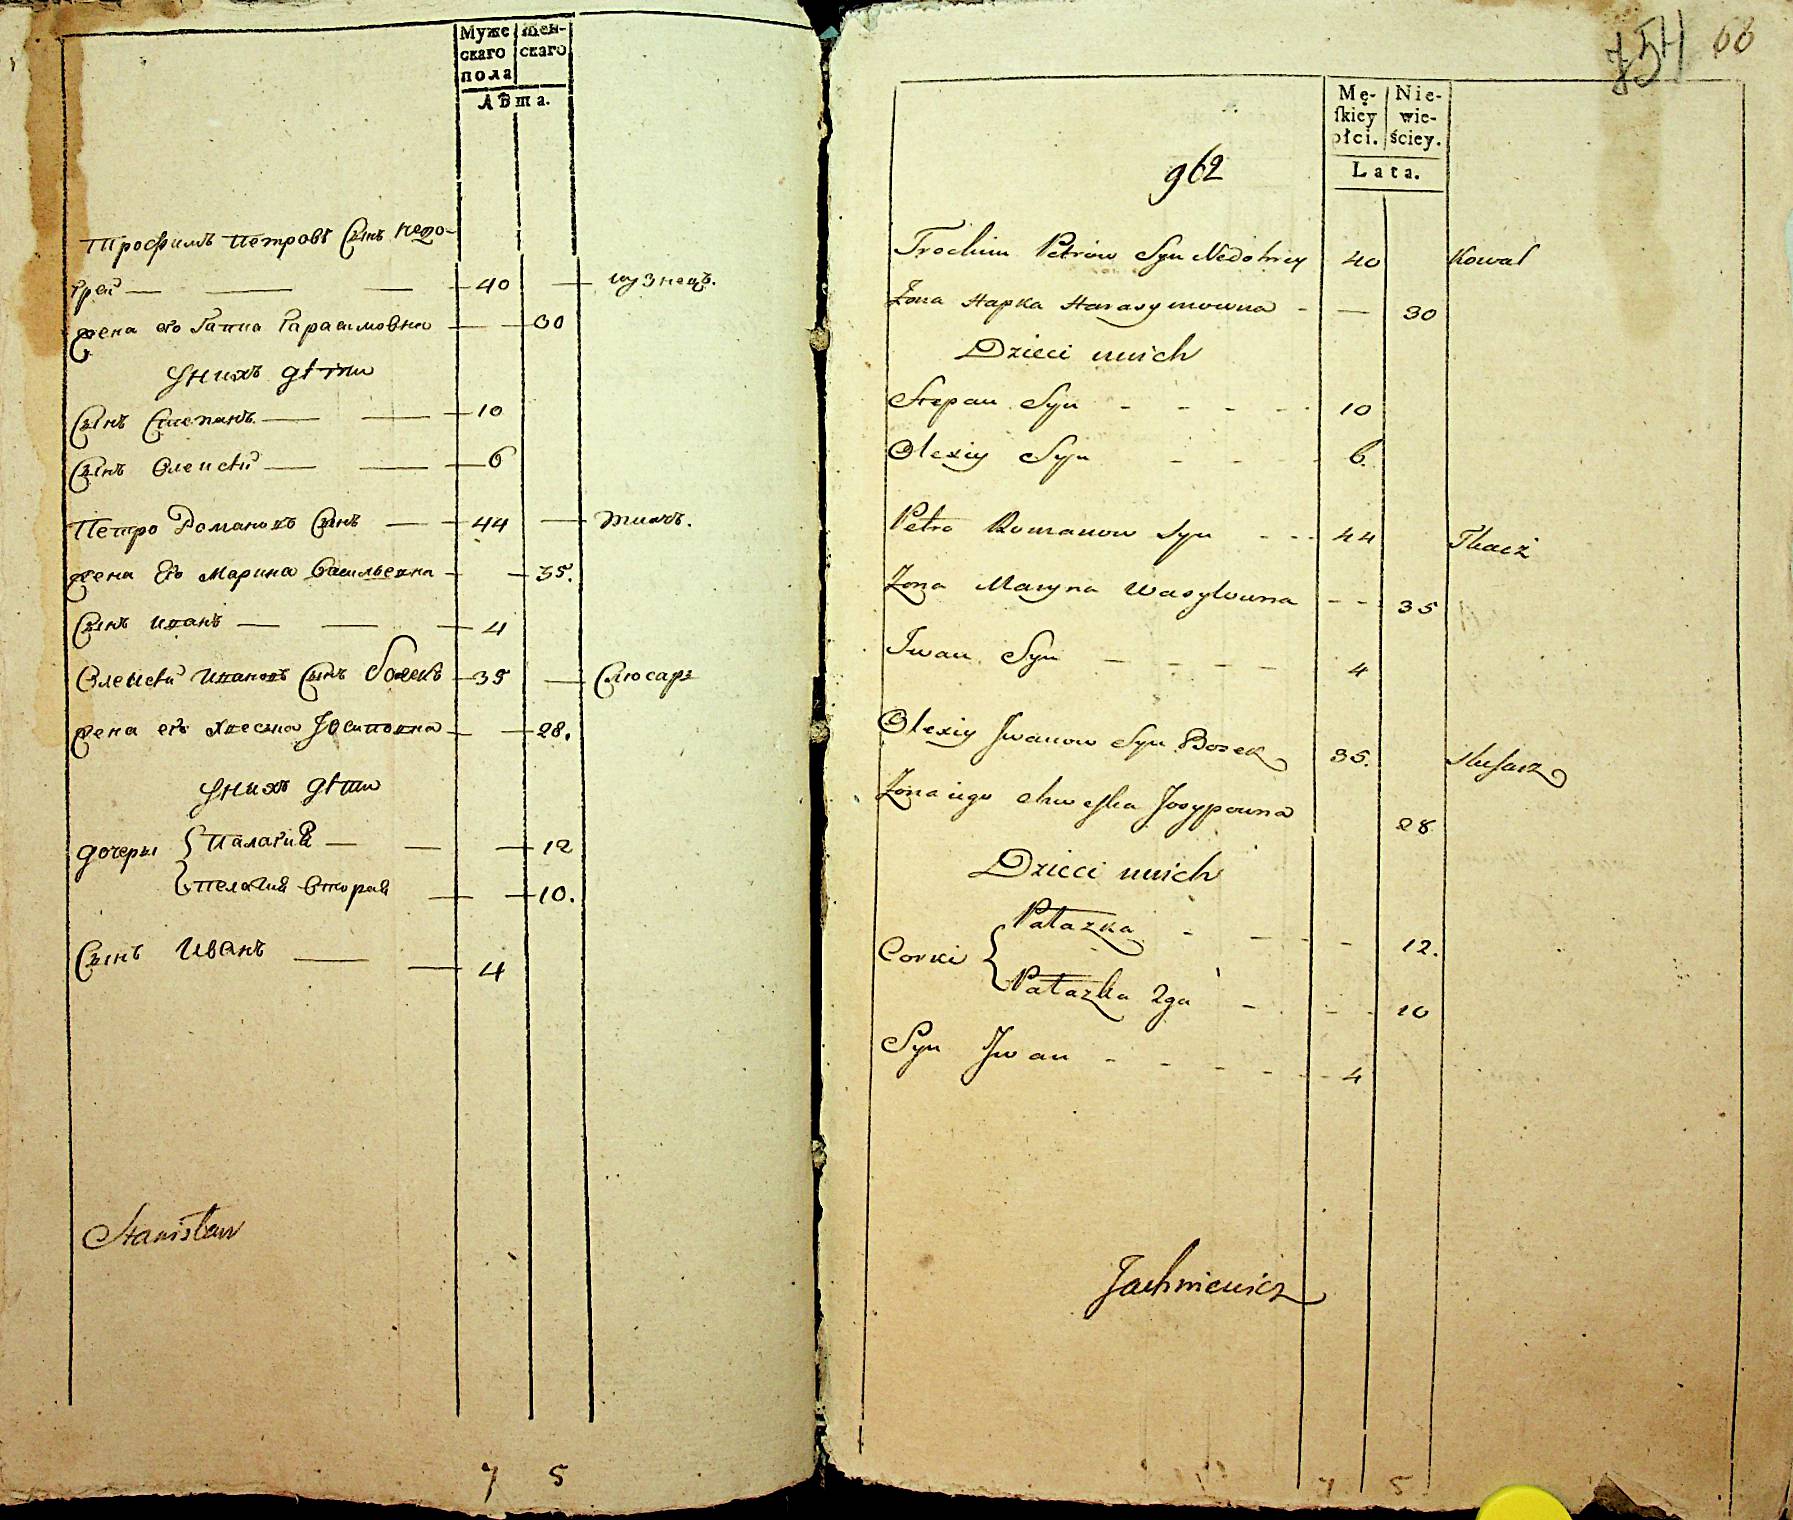 Муже
скаго
пола
Жен-
скаго
Лѣта.
Трофимъ Петровъ Сынъ Недо-
грей — 40 — кузнецъ.
жена его Гапка Гарасимовна — 30
У нихъ дѣти
Сынъ Степанъ — 10
Сынъ Олексѣй — 6
Петро Романовъ Сынъ — 44 — ткачъ.
жена Его Марина Васильевна — 35.
Сынъ иванъ — 4
Олексѣй Ивановъ Сынъ Босекъ 35 — Слюсаръ
жена его Хвеска Юсиповна — 28.
У нихъ дѣти
дочеры { Палагия — 12
Пелагия Вторая — 10.
Сынъ Иванъ — 4
Stanisław
7 5
754 68
Mę-
skiey
płci.
Nie-
wie-
ściey.
Lata.
962
Trochim Petrow Syn Nedohrey 40 Kowal
Żona Hapka Harasymowna - — 30
Dzieci u nich
Stepan Syn - - - - 10
Olexiy Syn - - - 6.
Petro Romanow Syn - - - 44 Tkacz
Żona Maryna Wasylowna - - 35
Iwan Syn — - - - 4
Olexiy Iwanow Syn Bosek 35. Slusarz
Żona iego Chweska Josypowna 28
Dzieci u nich
Corki { Pałazka - - - - 12.
Pałazka 2ga - - - 10
Syn Iwan - - - - - 4
Jachniewicz
7 5